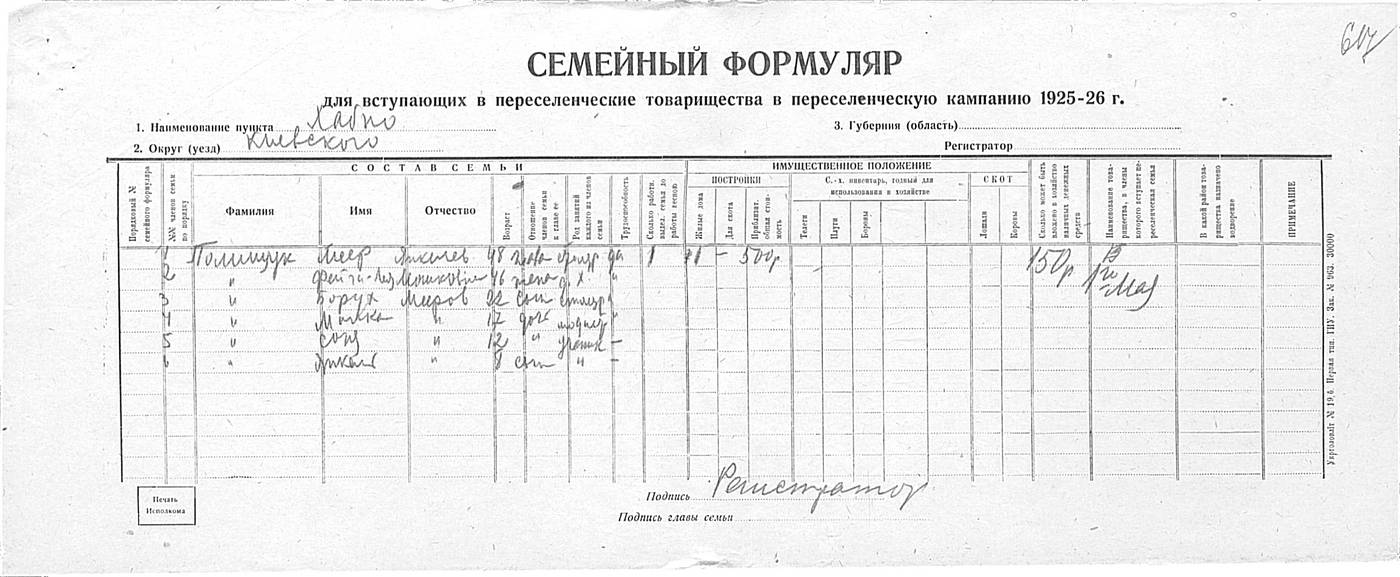 607
СЕМЕЙНЫЙ ФОРМУЛЯР
для вступающих в переселенческие товарищества в переселенческую кампанию 1925-26 г.
1. Наименование пункта Хабно
3. Губерния (область)
2. Округ (уезд) Киевского
Регистратор
Порядковый № семейного формуляра
СОСТАВ СЕМЬИ
№№ членов семьи по порядку
Фамилия
Имя
Отчество
Возраст
Отношение членов семьи к главе ее
Род занятий каждого из членов семьи
Трудоспособность
Сколько работн. выдел. семья до работы весною
ИМУЩЕСТВЕННОЕ ПОЛОЖЕНИЕ
ПОСТРОЙКИ
Жилые дома
Для скота
Приблизит. общая стоимость
С.-х. инвентарь, годный для использования в хозяйстве
Телеги
Плуги
Бороны
СКОТ
Лошади
Коровы
Сколько может быть вложено в хозяйство наличных денежных средств
Наименование товарищества, в члены которого вступает переселенческая семья
В какой район товарищества назначено водворение
ПРИМЕЧАНИЕ
1 Полищук Меер Янкелев 48 глава да 1 1 – 500р 150р 1го Мая
2 " Мошкович 46 жена д. х. "
3 " Борух Меиров 22 сын "
4 " Малка " 17 дочь "
5 " Соня " 12 " ученик –
6 " Янкель " 8 сын " –
Печать Исполкома
Подпись Регистратор
Подпись главы семьи
Укрголовлiт № 19,6. Первая тип. ГПУ. Зак. № 963. 30000